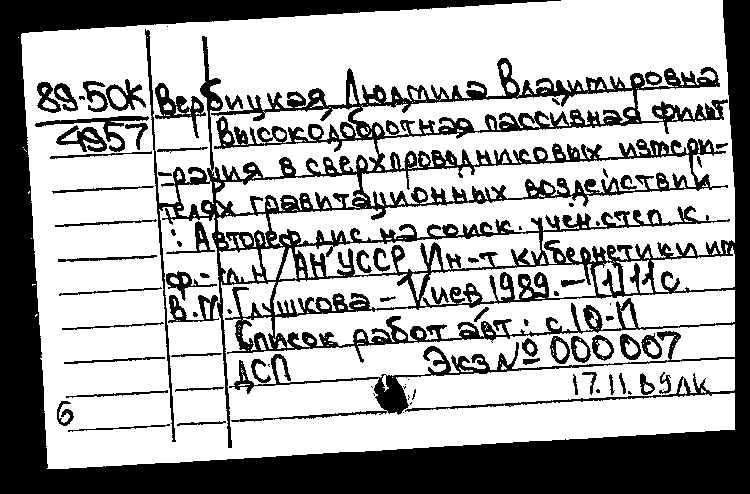 89-50К Вербицкая Людмила Владимировна
4957 Высокодобротная пассивная фильт
-рация в сверхпроводниковых измери-
телях гравитационных воздействий
: Автореф. дис. на соиск. учен. степ. к.
ф.-м. н / АН УССР Ин-т кибернетики им
В.М. Глушкова. - Киев 1989. - [1] 11 с.
Список работ авт.: с. 10-11
ДСП Экз № 000007
17.11.89лк
6